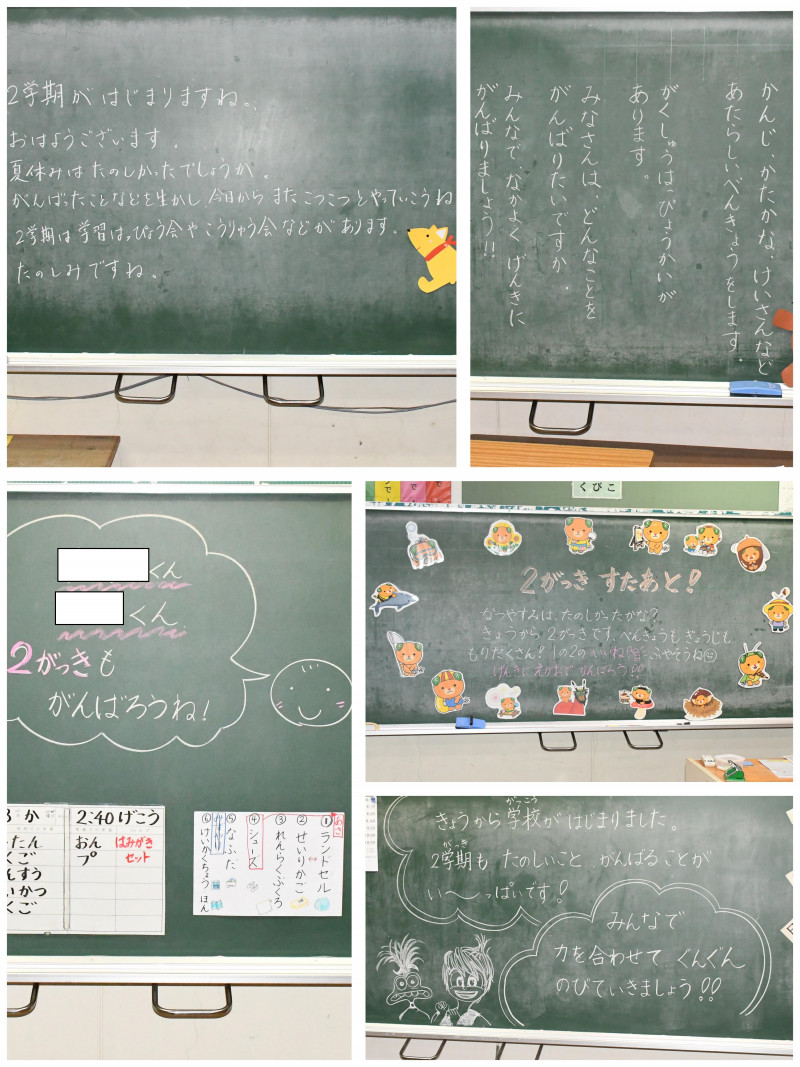 2学期がはじまりますね。
おはようございます。
夏休みはたのしかったでしょうか。
がんばったことなどを生かし 今日から またこつこつとやっていこうね
2学期は学習はっぴょう会やこうりゅう会などがあります。
たのしみですね。
かんじ、かたかな、けいさんなど
あたらしいべんきょうをします。
がくしゅうはっぴょうかいが
あります。
みなさんは、どんなことを
がんばりたいですか。
みんなで、なかよく げんきに
がんばりましょう!!
くん
くん
2がっきも
がんばろうね!
2:40げこう
おん
プ
はみがき
セット
かつ
くご
あさ
①ランドセル
②せいりかご
③れんらくぶくろ
④シューズ
⑤なふだ
⑥けいかくちょう ほん
くびこ
2がっき すたあと!
なつやすみは、たのしかったかな?
きょうから2がっきです。べんきょうも ぎょうじも
もりだくさん! 1の2の がいね ふやそうね
げんきに えがおで がんばろう!!
きょうから学校がはじまりました。
がっこう
2学期も たのしいこと がんばることが
がっき
い〜っぱいです!
みんなで
力を合わせて ぐんぐん
のびていきましょう!!